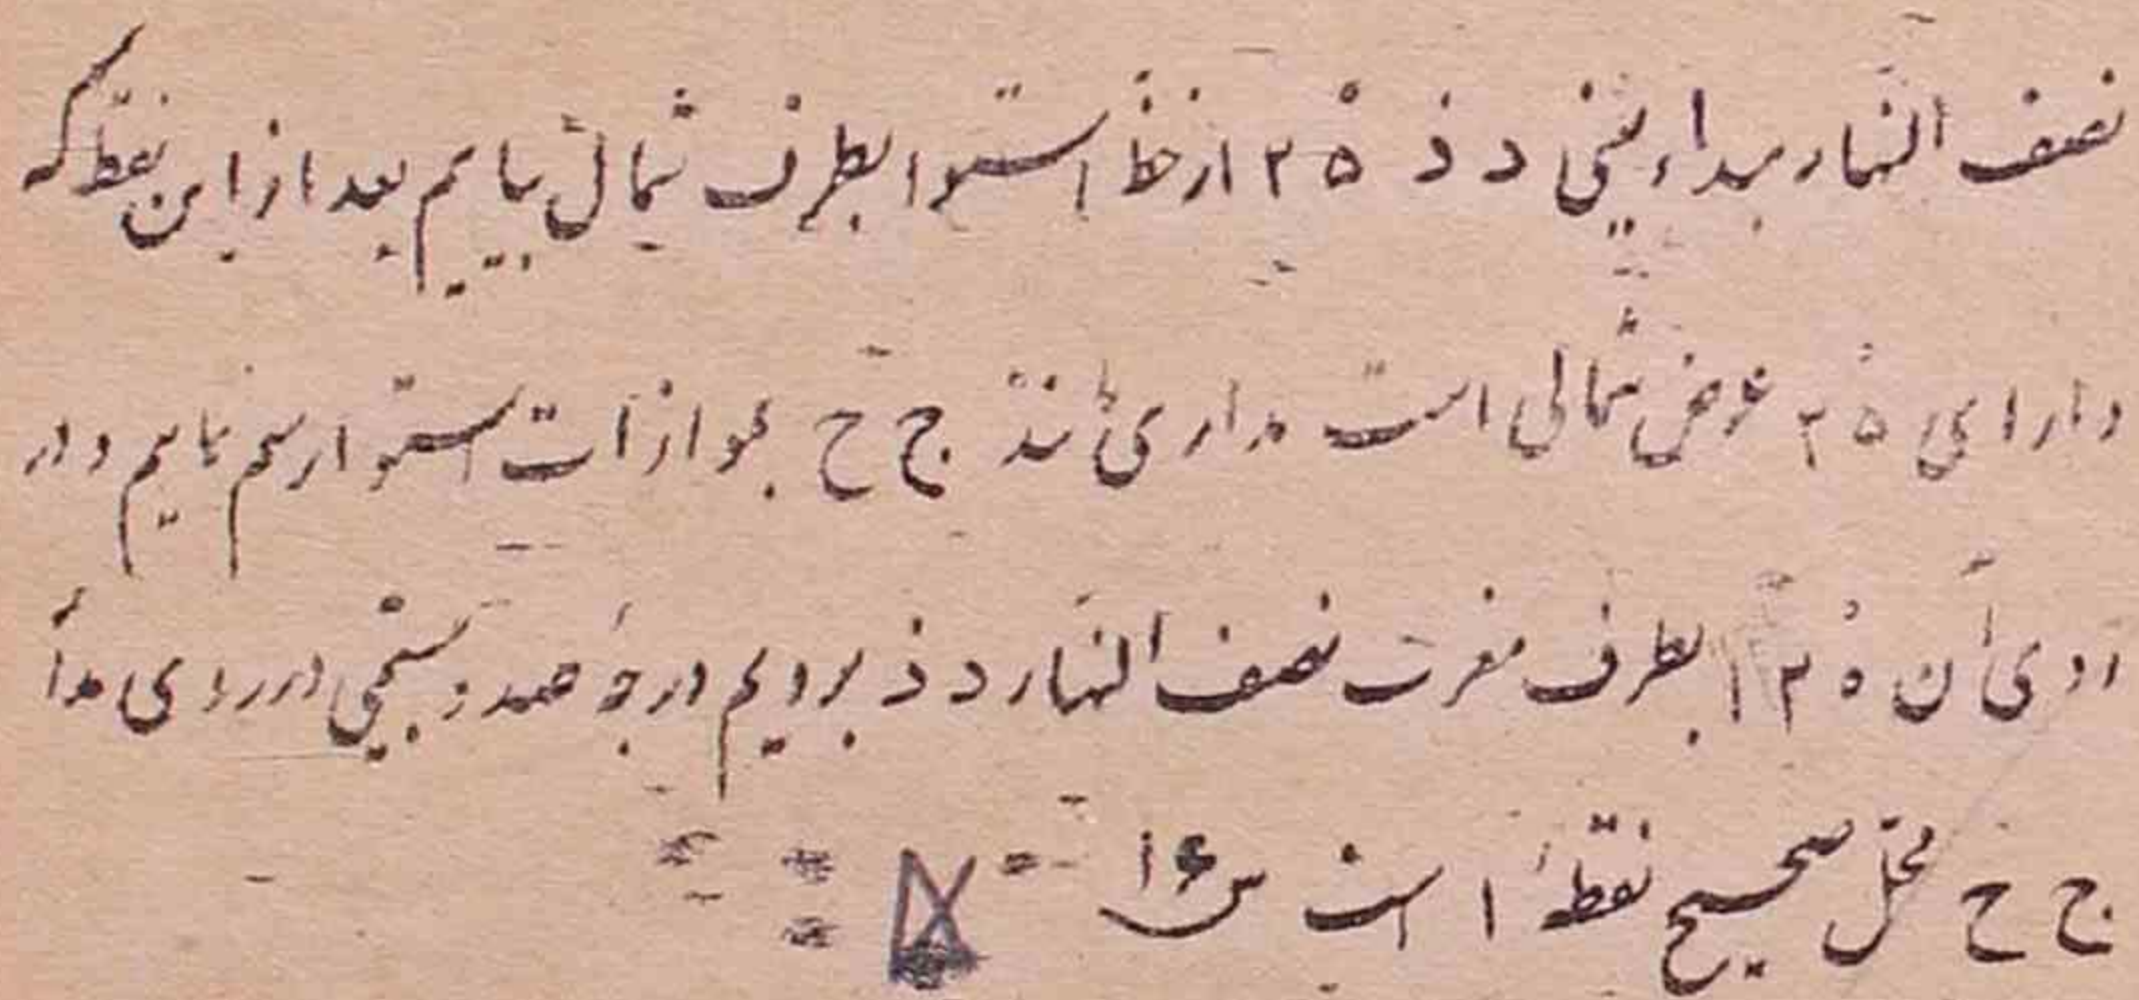 نصف النهار مبداء یعنی د ذ ۲۵ از خط استوا بطرف شمال بیابیم بعد از این نقطه که
دارای ۲۵ عرض شمالی است مداری مانند ج ح بموازات استوا رسم نمائیم و در
روی آن ۱۲۵ بطرف مغرب نصف النهار د ذ برویم درجهٔ صد و بیستمی در روی مدار
ج ح محل صحیح نقطهٔ ا است س ۱۶